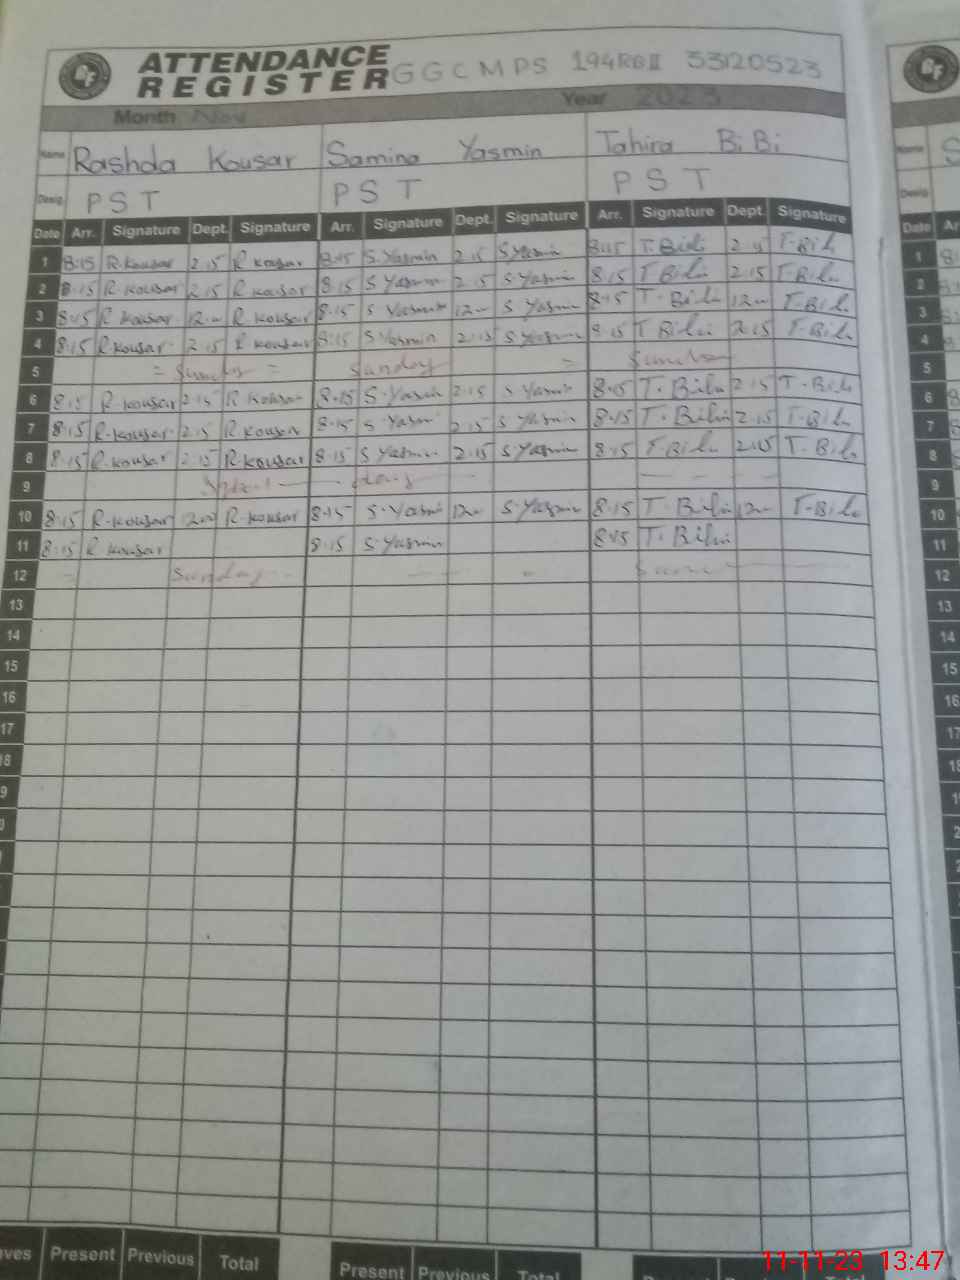 ATTENDANCE
REGISTER GGCMPS 194RBII 33120523
Month Nov Year 2023
Name Rashda Kousar Samina Yasmin Tahira BiBi Name
Desig. PST PST PST Desig
Date Arr. Signature Dept. Signature Arr. Signature Dept. Signature Arr. Signature Dept. Signature Date Ar
1 8:15 R.kousar 2.15 R kousar 8:15 S.Yasmin 2.15 S Yasmin 8:15 T.Bibi 2.15 T-Bibi 1
2 8:15 R kousar 2.15 R kousar 8.15 S Yasmin 2.15 S.Yasmin 8.15 T.Bibi 2.15 T-Bibi 2
3 8:15 R kousar 12.00 R kousar 8.15 S Yasmin 12 S Yasmin 8:15 T.Bibi 12 T-Bibi 3
4 8:15 R.kousar 2.15 R kousar 8:15 S Yasmin 2:15 S Yasmin 8.15 T Bibi 2.15 T-Bibi 4
5 = Sunday = Sunday = Sunday 5
6 8:15 R kousar 2.15 R kousar 8.15 S.Yasmin 2.15 S Yasmin 8:15 T.Bibi 2.15 T.Bibi 6
7 8:15 R.kousar 2.15 R kousar 8.15 S-Yasmin 2.15 S Yasmin 8.15 T.Bibi 2.15 T-Bibi 7
8 8:15 R.kousar 2:15 R.kousar 8.15 S Yasmin 2:15 S.Yasmin 8:15 T.Bibi 2.15 T.Bibi 8
9 day 9
10 8:15 R-kousar 12.00 R-kousar 8.15 S.Yasmin 12 S.Yasmin 8.15 T.Bibi 12 T-Bibi 10
11 8:15 R kousar 8.15 S.Yasmin 8:15 T.Bibi 11
12 Sunday 12
13 13
14 14
15 15
16 16
17 17
18 18
9
Present Previous Total Present Previous Total
11-11-23 13:47